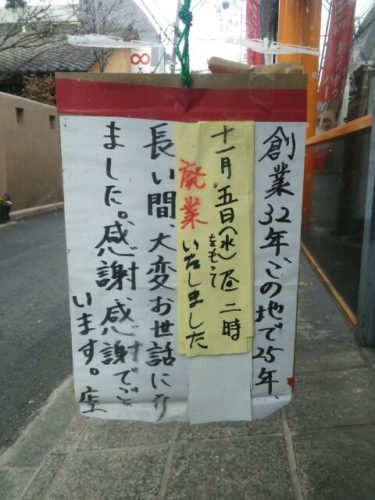 創業32年、この地で25年、
十一月五日(水)昼二時
をもって
廃業いたしました
長い間大変お世話になり
ました。感謝、感謝でござ
います。店
8